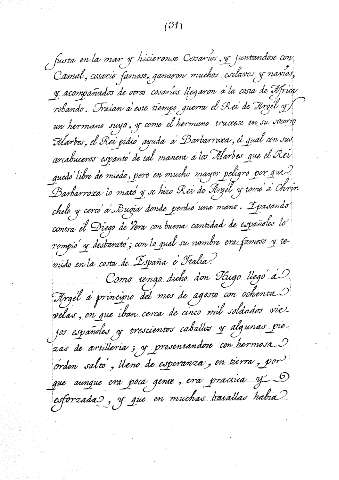 (31)
fusta en la mar y hicieronse Cosarios, y juntandose con
Camal, cosario famoso, ganaron muchos esclavos y navios,
y acompañados de otros cosarios llegaron á la costa de Africa
robando. Traian á este tiempo guerra el Rei de Argél y
un hermano suyo, y como el hermano truxese en su socorro
Alarbes, el Rei pidio ayuda á Barbarroxa, el qual con sus
arcabuceros espantó de tal manera á los Alarbes que el Rei
quedó libre de miedo, pero en mucho mayor peligro por que
Barbarroxa lo mató y se hizo Rei de Argél y tomó á
chelo y cercó á Bugia donde perdió una mano. I pasando
contra el Diego de Vera con buena cantidad de españoles lo
rompió y desbarató; con lo qual su nombre era famoso y te-
mido en la costa de España é Italia.
Como tengo dicho don Hugo llegó á
Argél á principio del mes de agosto con ochenta
velas, en que iban cerca de cinco mil soldados vie-
jos españoles y trescientos caballos y algunas pie-
zas de artilleria; y presentandose con hermosa
orden saltó, lleno de esperanza, en tierra, por
que aunque era poca gente, era practica y
esforzada, y que en muchas batallas habia